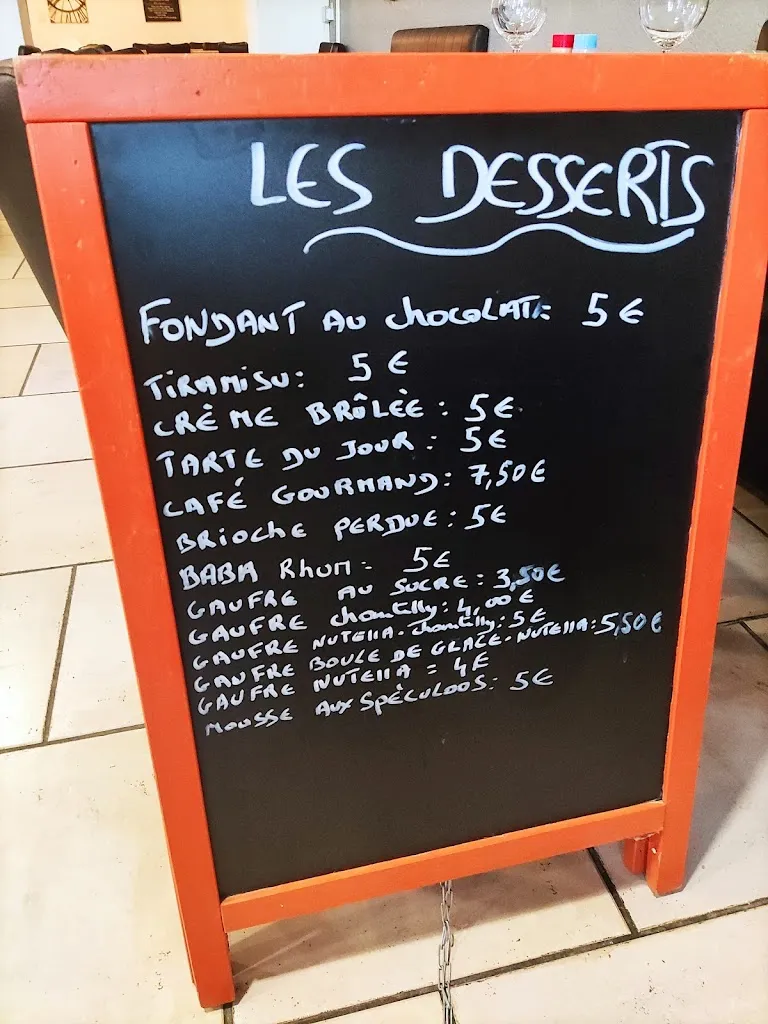 LES DESSERTS
FONDANT AU chocoLAT: 5€
TiRAMiSU: 5€
CRÈME BRÛLÈE: 5€
TARTE DU JOUR: 5€
CAFÉ GOURMAND: 7,50€
BRioche PERDUE: 5€
BABA RhUM: 5€
GAUFRE AU SUCRE: 3,50€
GAUFRE chantilly: 4,00€
GAUFRE NUTEllA-chantilly: 5€
GAUFRE BOULE DE GLACE-NUTEllA: 5,50€
GAUFRE NUTEllA = 4€
MOUSSE AUX SPÈCULOOS: 5€